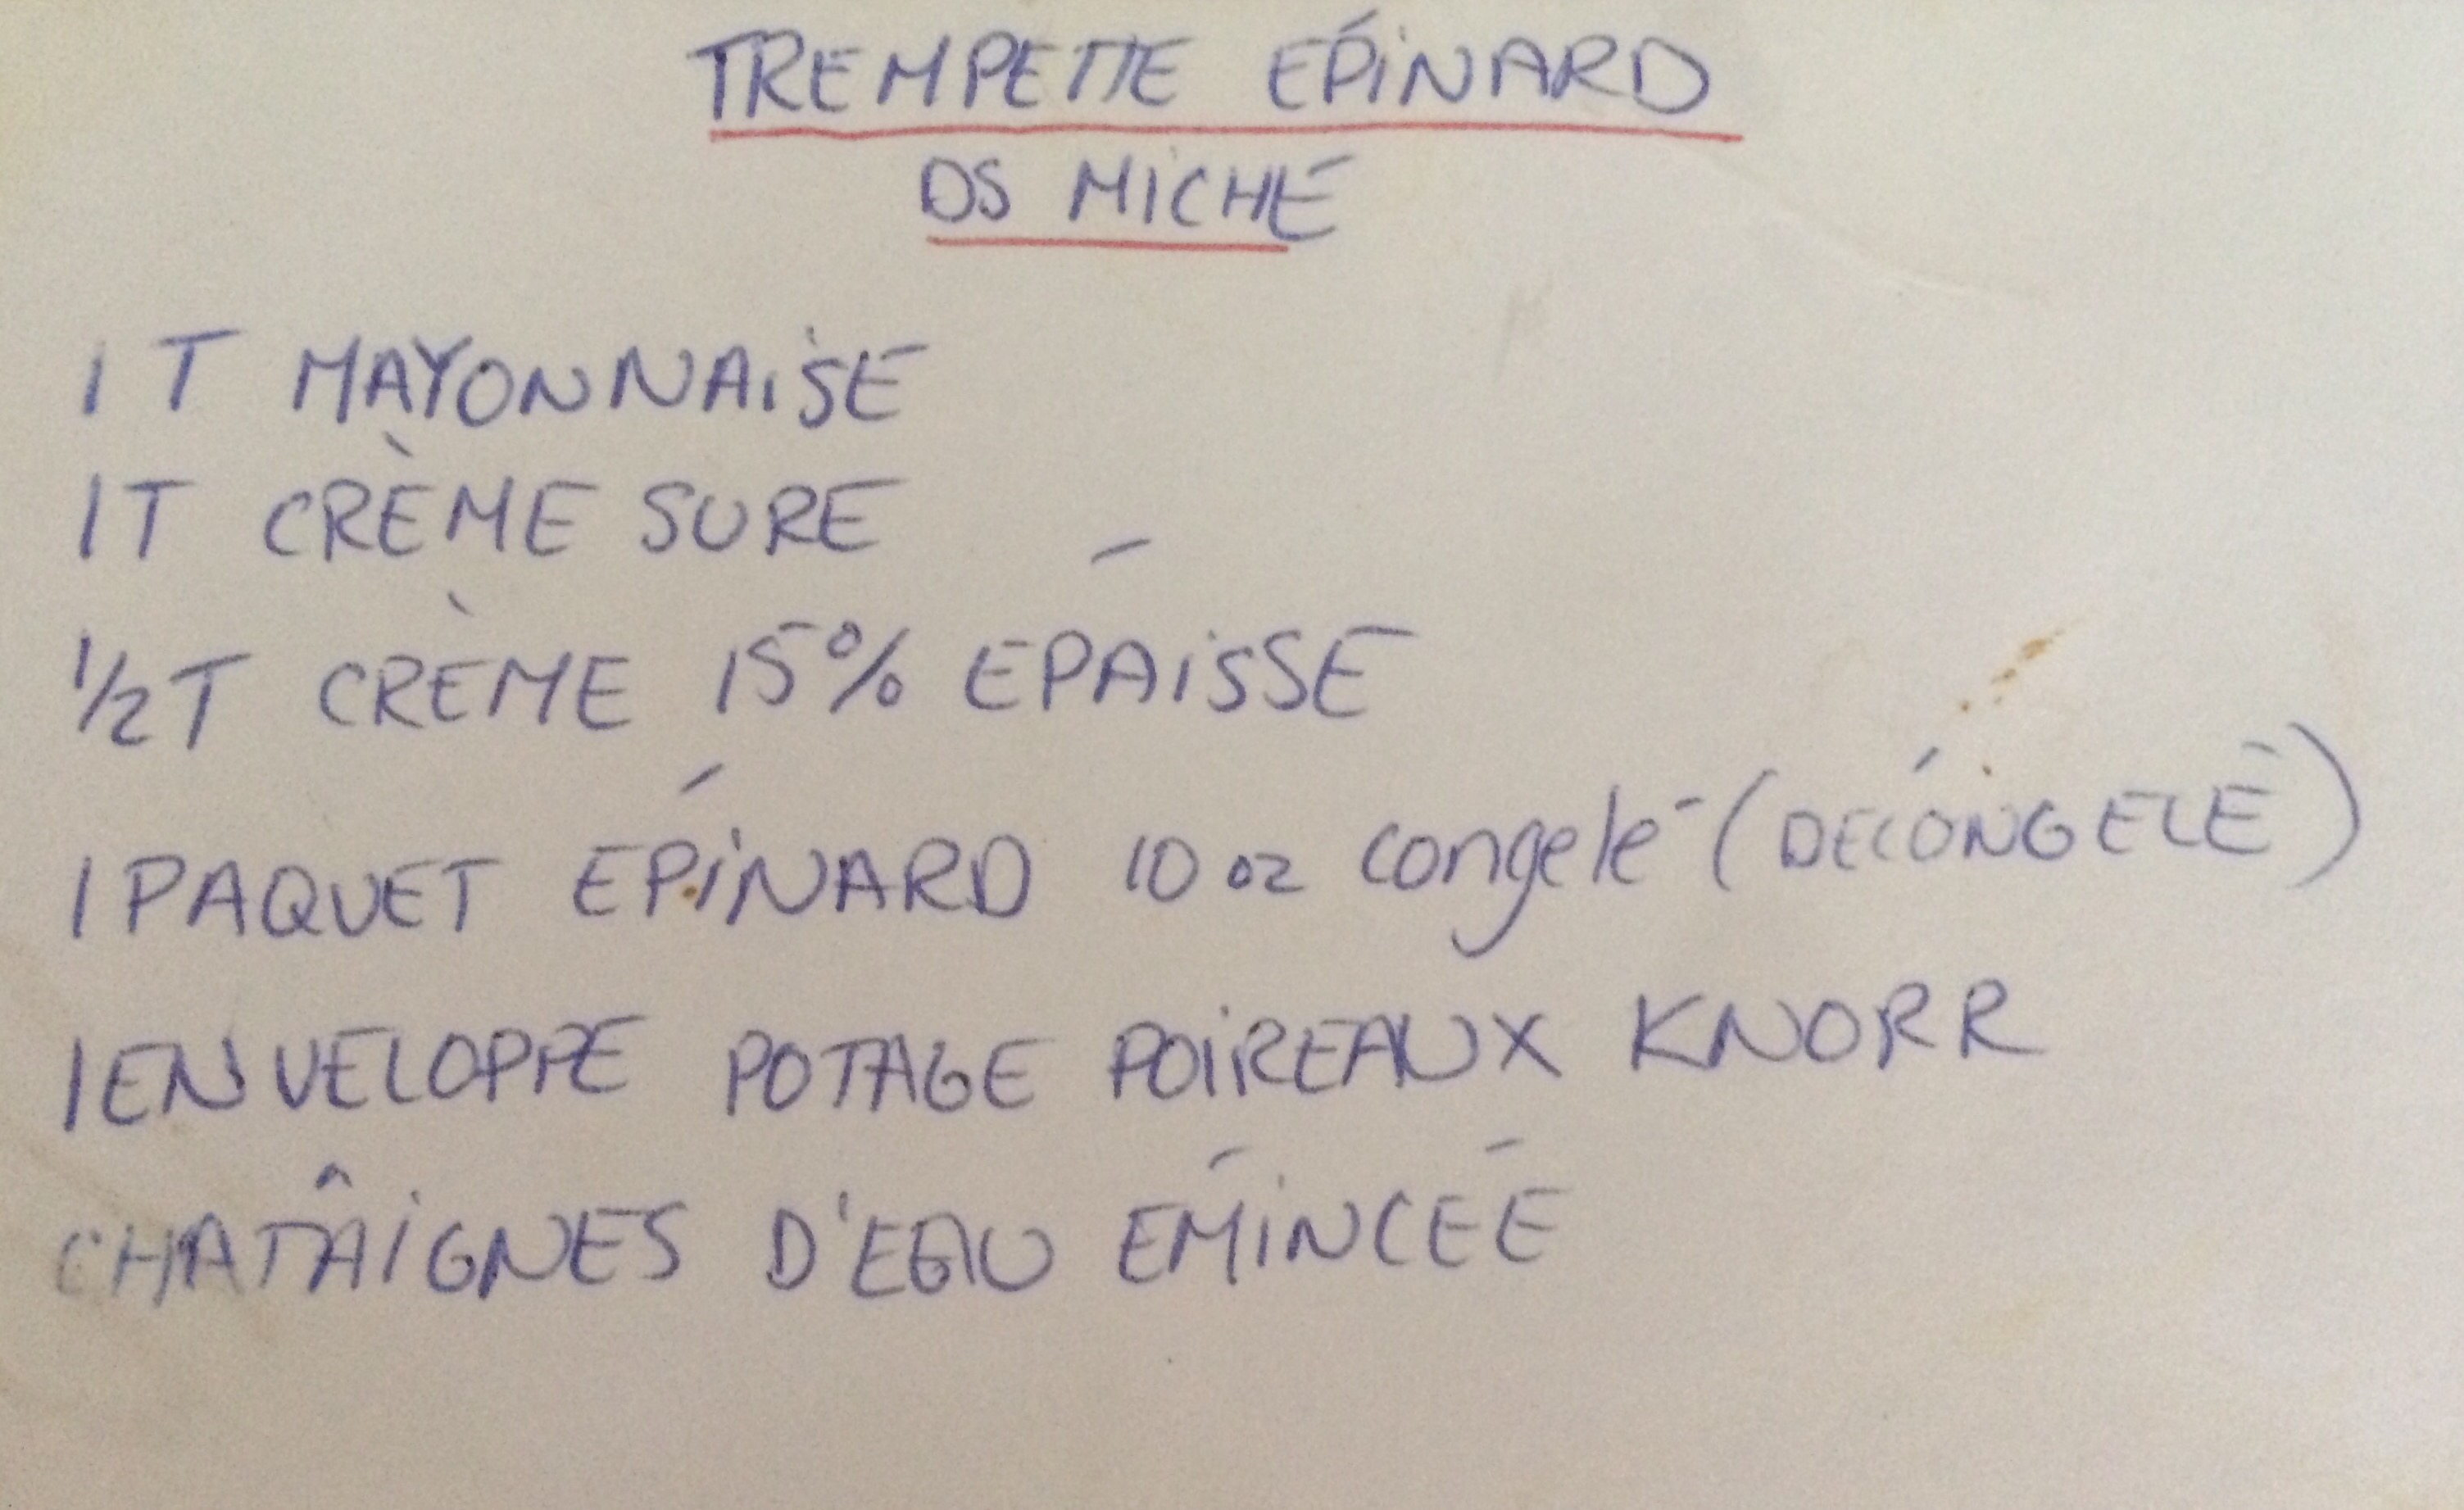 TREMPETTE ÉPINARD
DS MICHE
1 T MAYONNAISE
1 T CRÈME SURE
1/2 T CRÈME 15% ÉPAISSE
1 PAQUET ÉPINARD 10 oz congelé (DÉCONGELÉ)
1 ENVELOPPE POTAGE POIREAUX KNORR
CHATÂIGNES D'EAU ÉMINCÉE